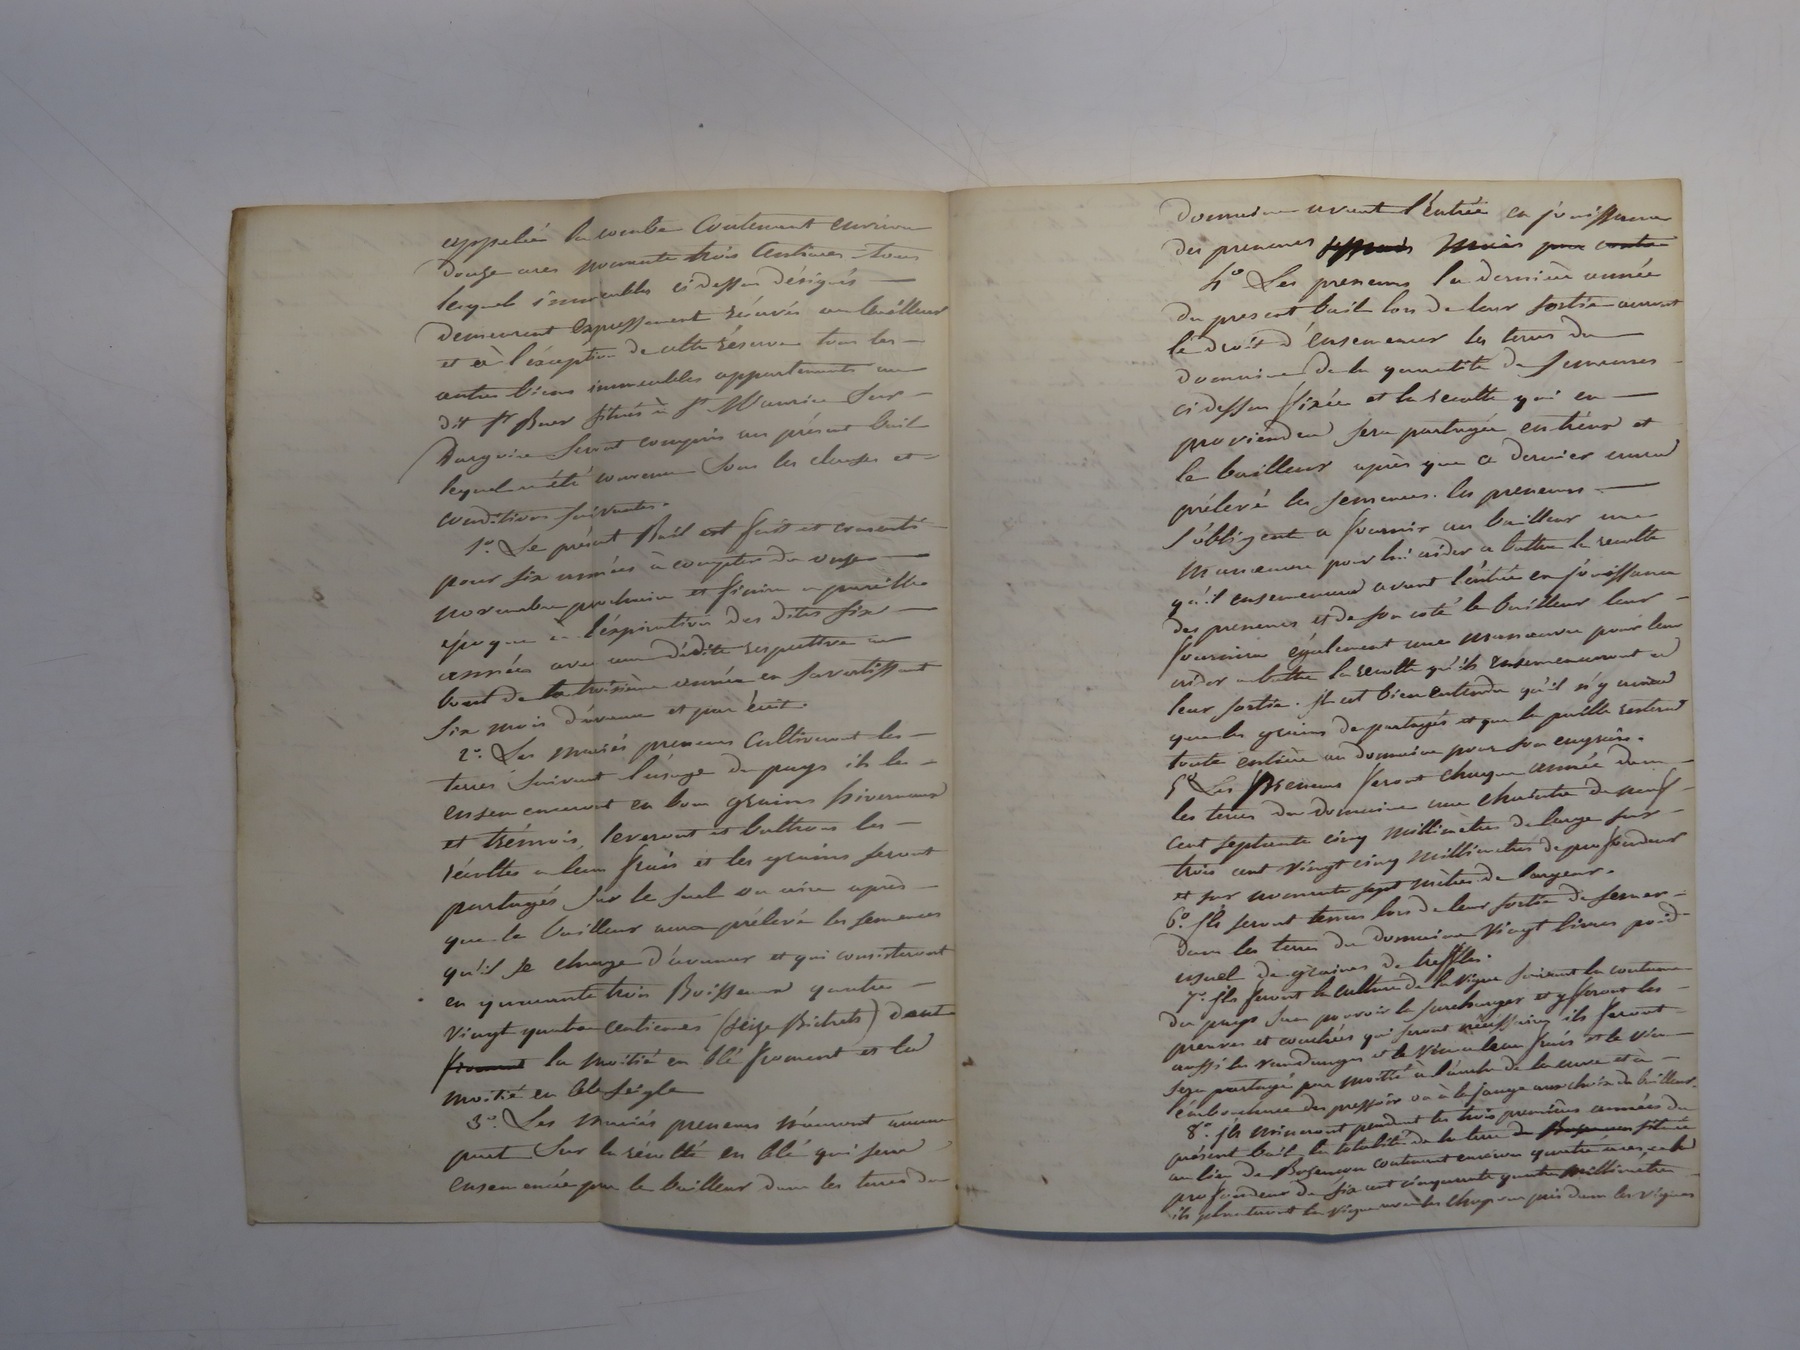 appelée la combe Contenant environ
douze ares nonante trois Centiares tous
lesquels immeubles ci dessus désignés
demeurent Expressement réservés au bailleur
et à l'éxception de cette réserve tous les
autres biens immeubles appartenants au
dit Sr Buer situés à St Maurice Sur
Dargoire seront compris au présent bail
lequel a été convenu Sous les clauses et
conditions suivantes.
1o. Le présent Bail est fait et consenti
pour six années à compter du onze
novembre prochain et finira a pareille
époque à l'éxpiration des dites six
années avec une dédite respective au
bout de la troisième année en s'avertissant
six mois d'avance et par écrit.
2o. Les mariés preneurs Cultiveront les
terres suivant l'usage du pays ils les
ensemenceront en bons grains hivernaux
et trémois, leveront et battrons les
récoltes a leurs frais et les grains seront
partagés Sur le Suel ou aire après
que le bailleur aura prélevé les semences
qu'il se charge d'avancer et qui consisteront
en quarante trois Boisseaux quatre
vingt quatre centiemes (seize Bichets) dont
froment la moitié en blé froment et la
moitié en blé seigle
3o. Les mariés preneurs n'auront aucune
part Sur la récolté en blé qui sera
ensemencée par le bailleur dans les terres du
domaine avant l'entrée en jouissance
des preneurs mais
4o Les preneurs la dernière année
du present bail lors de leur sortie auront
le droit d'ensemencer les terres du
domaine de la quantité de semences
ci dessus fixée et la recolte qui en
proviendra sera partagée entr'eux et
le bailleur après que ce dernier aura
prélevé les semences. les preneurs
s'obligent a fournir au bailleur une
manœuvre pour lui aider a battre la recolte
qu'il ensemencera avant l'entrée en jouissance
des preneurs et de son coté le bailleur leur
fournira également une manœuvre pour leur
aider a battre la recolte qu'ils ensemenceront a
leur sortie. il est bien entendu qu'il n'y aura
que les grains de partagés et que la paille restera
toute entière au domaine pour son engrais.
5o Les Preneurs feront chaque année dans
les terres du domaine une de neuf
cent septante cinq millimètres de large sur
trois cent vingt cinq millimètres de profondeur
et sur nonante sept mètres de longueur.
6o. ils seront tenus lors de leur sortie de semer
dans les terres du domaine vingt livres poids
usuel de graines de treffles.
7o. ils feront la culture de la vigne suivant la coutume
du pays sans pouvoir la surcharger et y feront les
preuves et couchées qui seront nécessaires ils feront
aussi les vendanges et le vin a leurs frais et le vin
sera partagé par moitié à l'anche de la cuve et à
l'embouchure du pressoir ou à la jauge au choix du bailleur.
8o. ils mineront pendant les trois premières années du
présent bail la totalité de la terre située
au lieu de contenant environ quatre ares a la
profondeur de six cent cinquante quatre millimètres
ils planteront la vigne avec les chapons pris dans les vignes